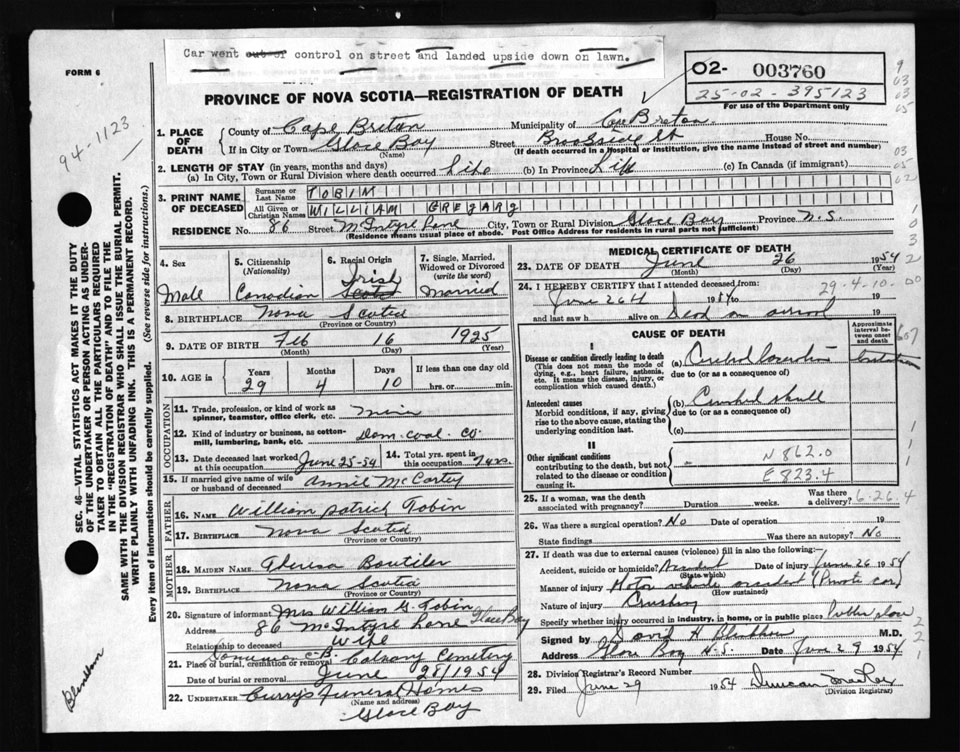 Car went out of control on street and landed upside down on lawn.
FORM 6
O2- 003760
25-02-395123
For use of the Department only
94-1123
PROVINCE OF NOVA SCOTIA—REGISTRATION OF DEATH
1. PLACE OF DEATH
County of Cape Breton Municipality of Cape Breton
If in City or Town Glace Bay Street Brookside St House No.
(Name) (If death occurred in a Hospital or Institution, give the name instead of street and number)
2. LENGTH OF STAY (in years, months and days)
(a) In City, Town or Rural Division where death occurred Life (b) In Province Life (c) In Canada (if immigrant)
3. PRINT NAME OF DECEASED
Surname or Last Name TOBIN
All Given or Christian Names WILLIAM GREGARY
RESIDENCE No. 86 Street McIntyre Lane City, Town or Rural Division Glace Bay Province N.S.
(Residence means usual place of abode. Post Office Address for residents in rural parts not sufficient)
4. Sex Male
5. Citizenship (Nationality) Canadian
6. Racial Origin Irish Scots
7. Single, Married, Widowed or Divorced (write the word) Married
8. BIRTHPLACE Nova Scotia
(Province or Country)
9. DATE OF BIRTH Feb 16 1925
(Month) (Day) (Year)
10. AGE in Years 29 Months 4 Days 10 If less than one day hrs. or min.
OCCUPATION
11. Trade, profession, or kind of work as spinner, teamster, office clerk, etc. Miner
12. Kind of industry or business, as cotton-mill, lumbering, bank, etc. Dom. coal. co.
13. Date deceased last worked at this occupation June 25-54
14. Total yrs. spent in this occupation 7 yrs.
15. If married give name of wife or husband of deceased Annie McCarty
FATHER
16. NAME William Patrick Tobin
17. BIRTHPLACE Nova Scotia
(Province or Country)
MOTHER
18. MAIDEN NAME Theresa Boutilier
19. BIRTHPLACE Nova Scotia
(Province or Country)
20. Signature of informant Mrs William G. Tobin
Address 86 McIntyre Lane Glace Bay
Relationship to deceased Wife
21. Place of burial, cremation or removal C.B. Calvary Cemetery
Date of burial or removal June 28/1954
22. UNDERTAKER Curry's Funeral Homes
(Name and address)
Glace Bay
MEDICAL CERTIFICATE OF DEATH
23. DATE OF DEATH June 26 1954
(Month) (Day) (Year)
24. I HEREBY CERTIFY that I attended deceased from: 29-4-10-00
June 26th 1954 to 19
and last saw h alive on Dead on arrival 19
CAUSE OF DEATH
Approximate interval between onset and death
I
Disease or condition directly leading to death
(This does not mean the mode of dying, e.g., heart failure, asthenia, etc. It means the disease, injury, or complication which caused death.)
(a) Cerebral
due to (or as a consequence of)
Antecedent causes
Morbid conditions, if any, giving rise to the above cause, stating the underlying condition last.
(b) Crushed skull
due to (or as a consequence of)
(c)
II
Other significant conditions contributing to the death, but not related to the disease or condition causing it.
N 862.0
E 823.4
25. If a woman, was the death associated with pregnancy? Duration weeks. Was there a delivery? 6-26.4
26. Was there a surgical operation? No Date of operation 19
State findings Was there an autopsy? No
27. If death was due to external causes (violence) fill in also the following:—
Accident, suicide or homicide? Accident Date of injury June 26 1954
(State which)
Manner of injury Motor vehicle accident (Private car)
(How sustained)
Nature of injury Crushing
Specify whether injury occurred in industry, in home, or in public place Public place
Signed by David H M.D.
Address Glace Bay N.S. Date June 29 1954
28. Division Registrar's Record Number
29. Filed June 29 1954 Duncan
(Division Registrar)
SEC. 46—VITAL STATISTICS ACT MAKES IT THE DUTY
OF THE UNDERTAKER OR PERSON ACTING AS UNDER-
TAKER TO OBTAIN ALL THE PARTICULARS REQUIRED
IN THE "REGISTRATION OF DEATH" AND TO FILE THE
SAME WITH THE DIVISION REGISTRAR WHO SHALL ISSUE THE BURIAL PERMIT.
WRITE PLAINLY WITH UNFADING INK. THIS IS A PERMANENT RECORD.
Every item of information should be carefully supplied. (See reverse side for instructions.)